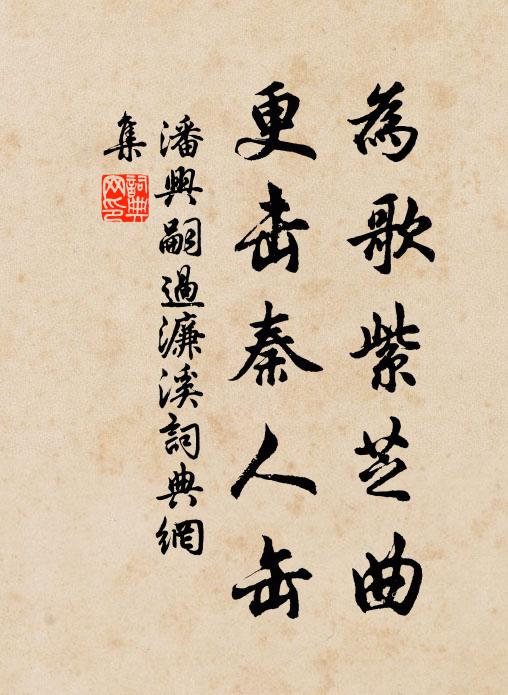 為歌紫芝曲
更击秦人缶
潘興嗣過濂溪詞典網
集
詞典
网印